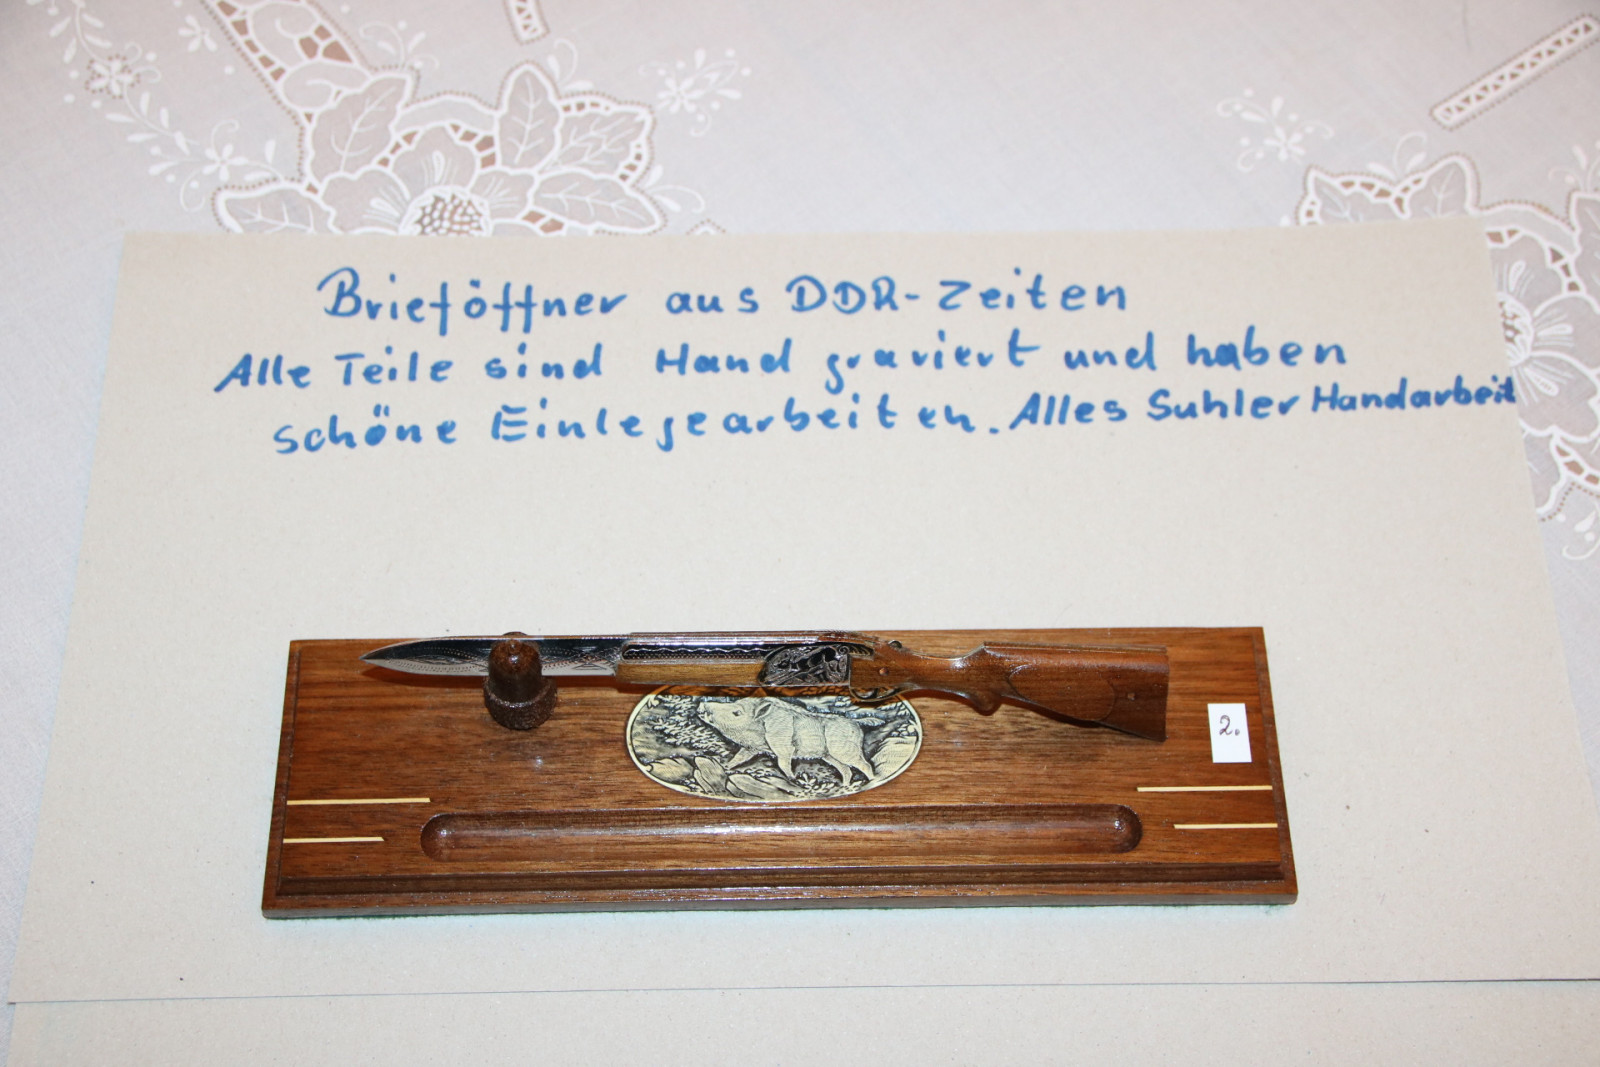 Brieföffner aus DDR-Zeiten
Alle Teile sind Hand graviert und haben
schöne Einlegearbeiten. Alles Suhler Handarbeit
2.